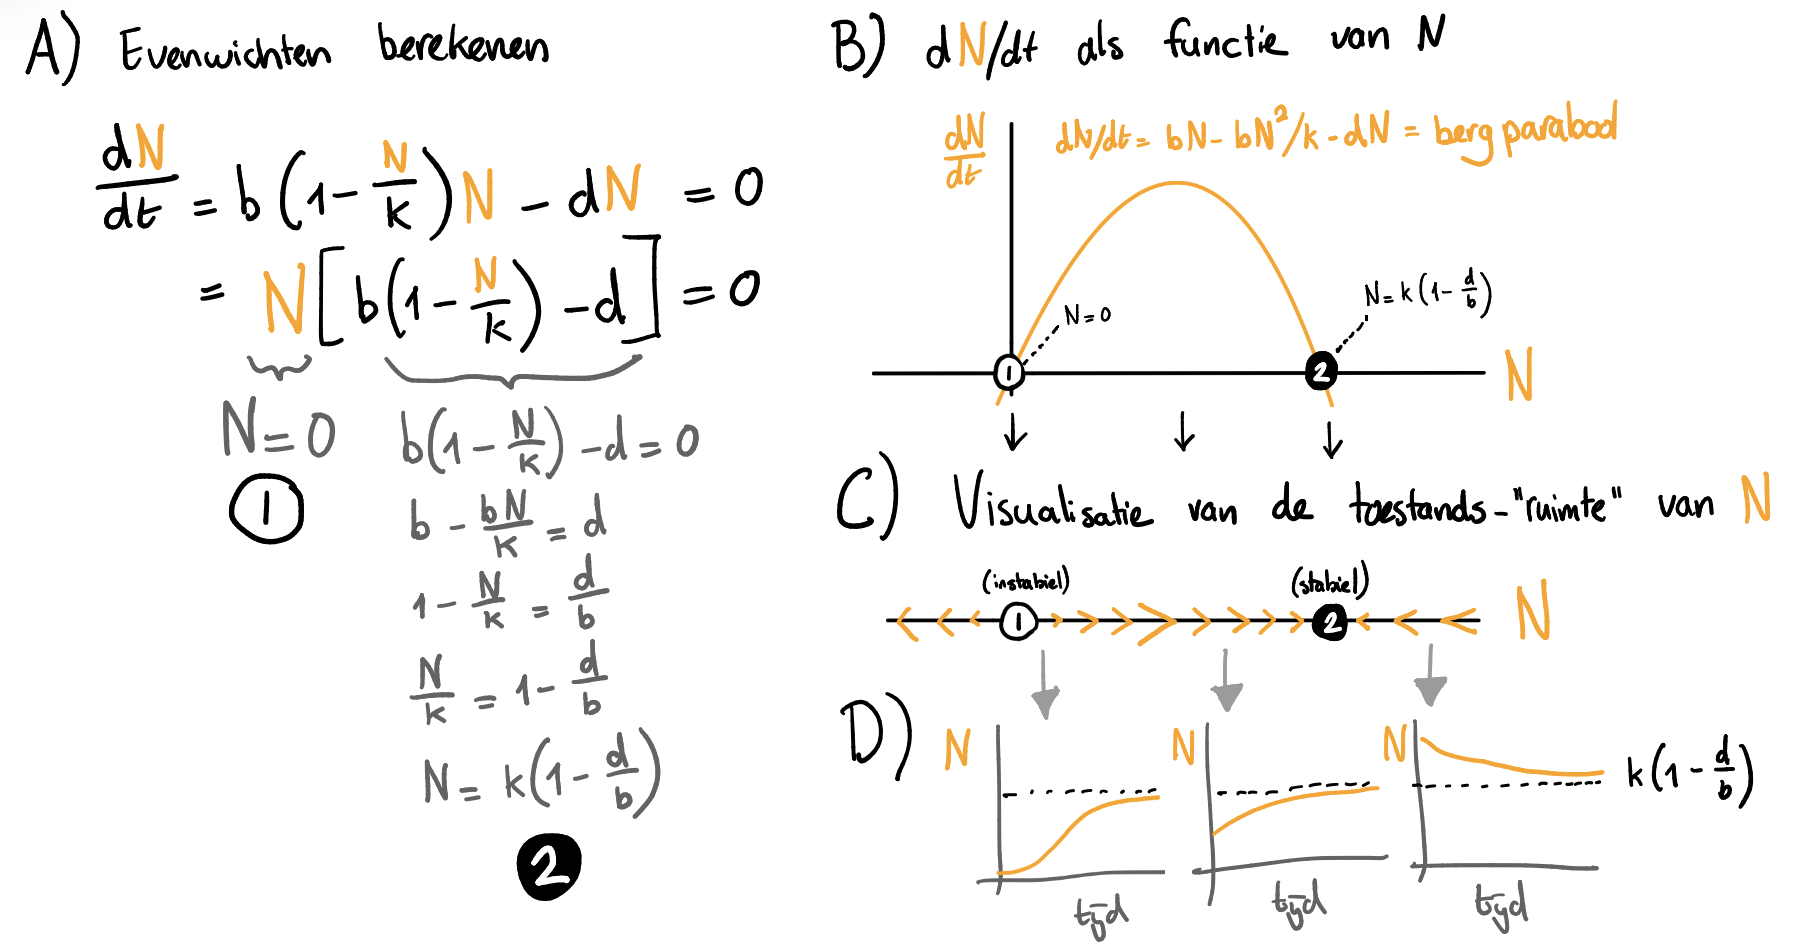 A) Evenwichten berekenen
dN/dt = b(1 - N/k)N - dN = 0
= N[b(1 - N/k) - d] = 0
N = 0
1
b(1 - N/k) - d = 0
b - bN/k = d
1 - N/k = d/b
N/k = 1 - d/b
N = k(1 - d/b)
2
B) dN/dt als functie van N
dN/dt
dN/dt = bN - bN²/k - dN = berg parabool
N = 0
N = k(1 - d/b)
1
2
N
C) Visualisatie van de toestands-"ruimte" van N
(instabiel)
(stabiel)
1
2
N
D)
N
tijd
N
tijd
N
k(1 - d/b)
tijd